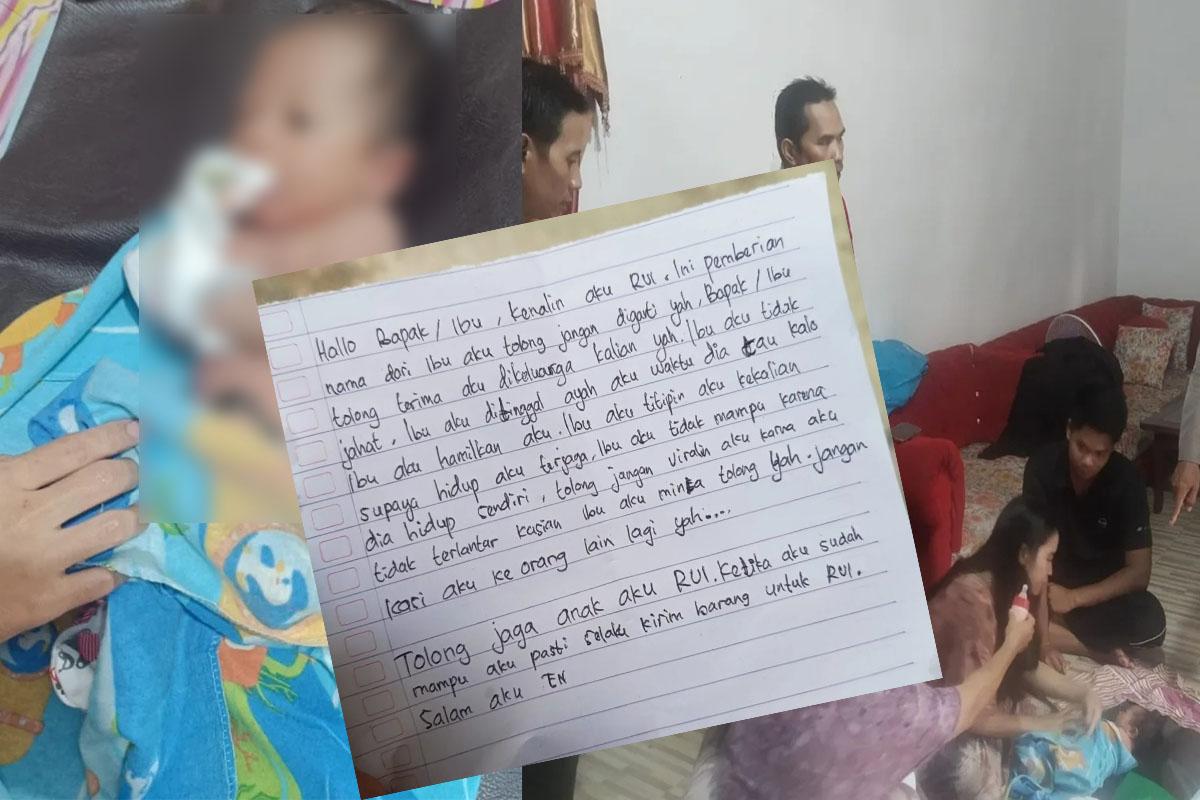 Hallo Bapak / Ibu, kenalin aku RUI. Ini pemberian
nama dari Ibu aku tolong jangan diganti yah, Bapak / Ibu
tolong terima aku dikeluarga kalian yah. Ibu aku tidak
jahat, Ibu aku ditinggal ayah aku waktu dia tau kalo
ibu aku hamilkan aku. Ibu aku titipin aku kekalian
supaya hidup aku terjaga, Ibu aku tidak mampu karena
dia hidup sendiri, tolong jangan viralin aku karna aku
tidak terlantar kasian Ibu aku minta tolong yah. jangan
kasi aku ke orang lain lagi yah....
Tolong jaga anak aku RUI. Ketika aku sudah
mampu aku pasti selalu kirim barang untuk RUI.
Salam aku EN